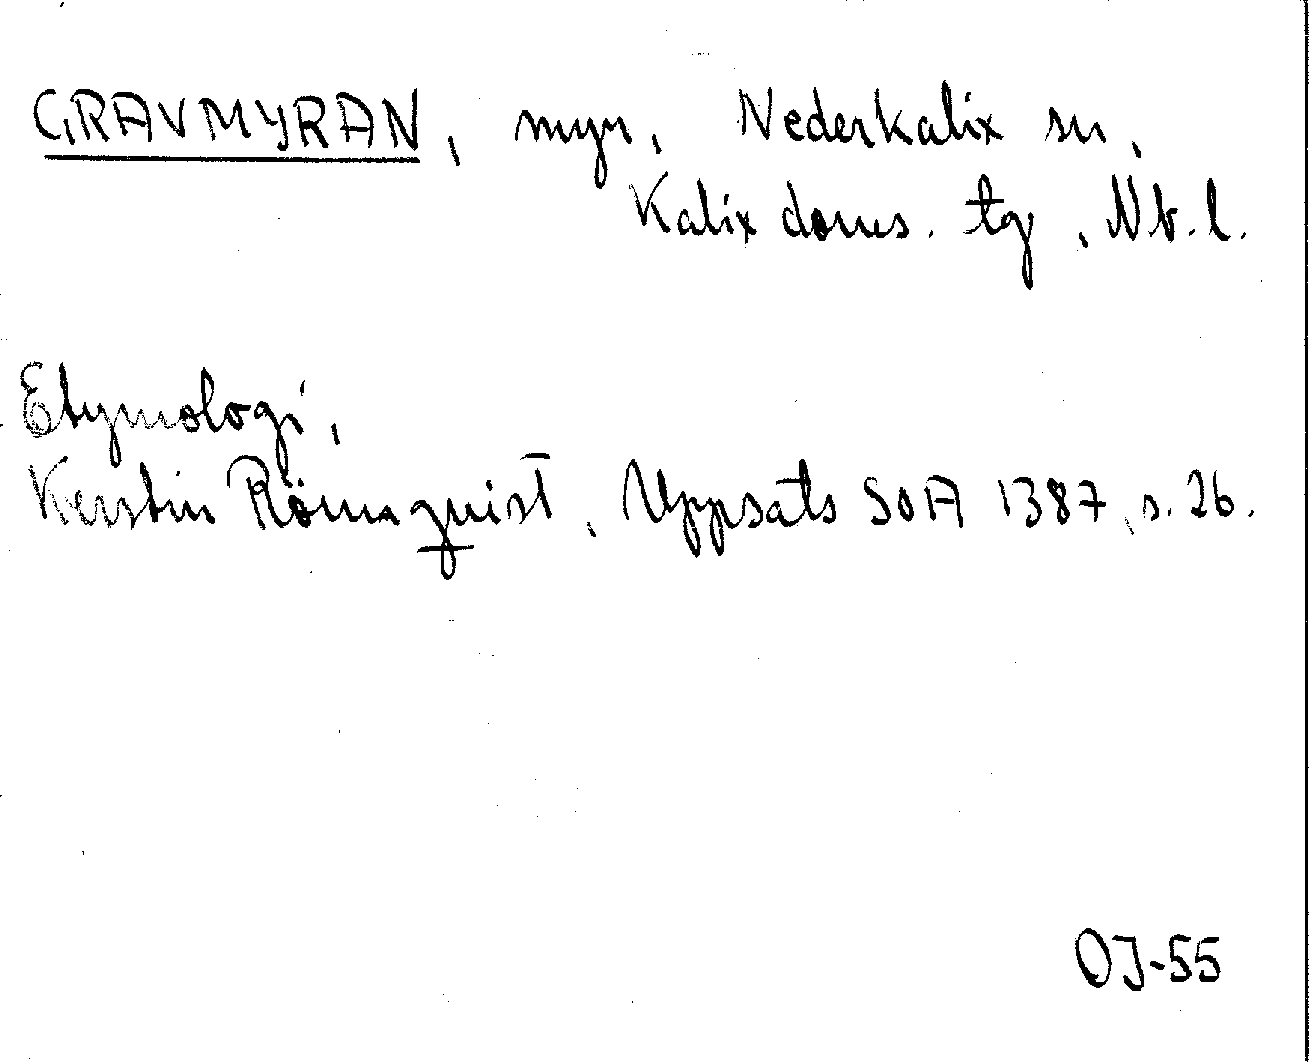 GRAVMYRAN, myr, Nederkalix sn,
Kalix doms. tg, Nb. l.
Etymologi,
Kerstin Römqvist, Uppsats SOA 1387, s. 26.
OJ-55